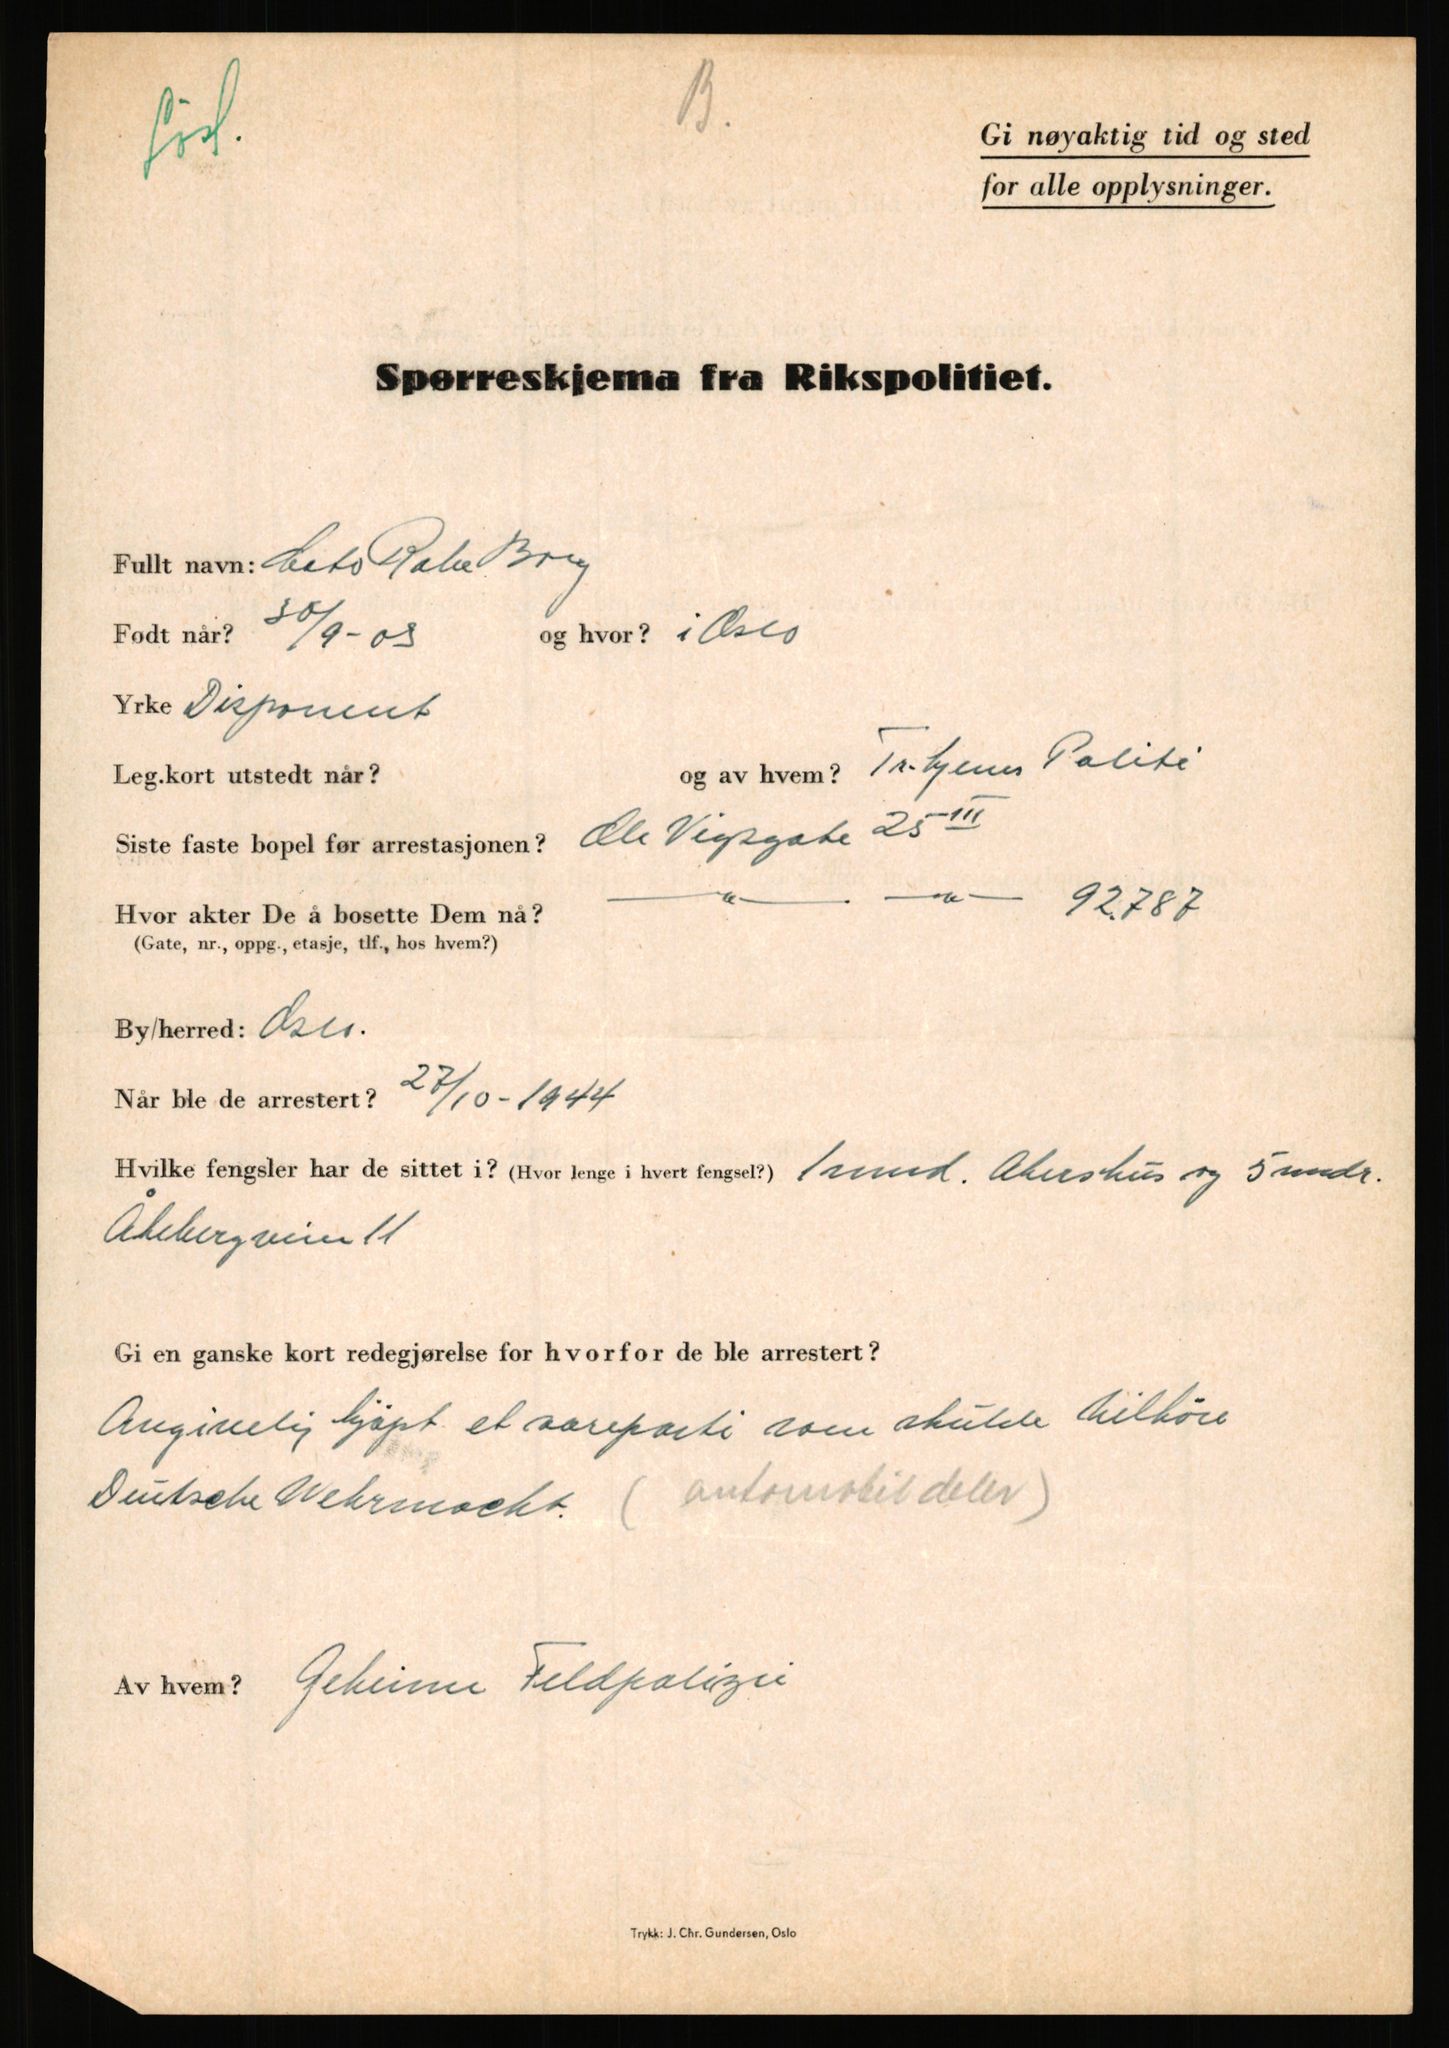 B.
Gi nøyaktig tid og sted
for alle opplysninger.
Spørreskjema fra Rikspolitiet.
Fullt navn: Cato Rabe Borg
Født når? 30/9-03 og hvor? i Oslo
Yrke Disponent
Leg.kort utstedt når? og av hvem? Politi
Siste faste bopel før arrestasjonen? Ole Vigsgate 25 III
Hvor akter De å bosette Dem nå? —"— —"— 92.787
(Gate, nr., oppg., etasje, tlf., hos hvem?)
By/herred: Oslo.
Når ble de arrestert? 27/10-1944
Hvilke fengsler har de sittet i? (Hvor lenge i hvert fengsel?) 1 mnd. Akershus og 5 mndr.
Åkebergveien 11
Gi en ganske kort redegjørelse for hvorfor de ble arrestert?
Angivelig kjøpt et vareparti som skulde tilhöre
Deutsche Wehrmacht. (automobil deler)
Av hvem? Geheime Feldpolizei
Trykk: J. Chr. Gundersen, Oslo